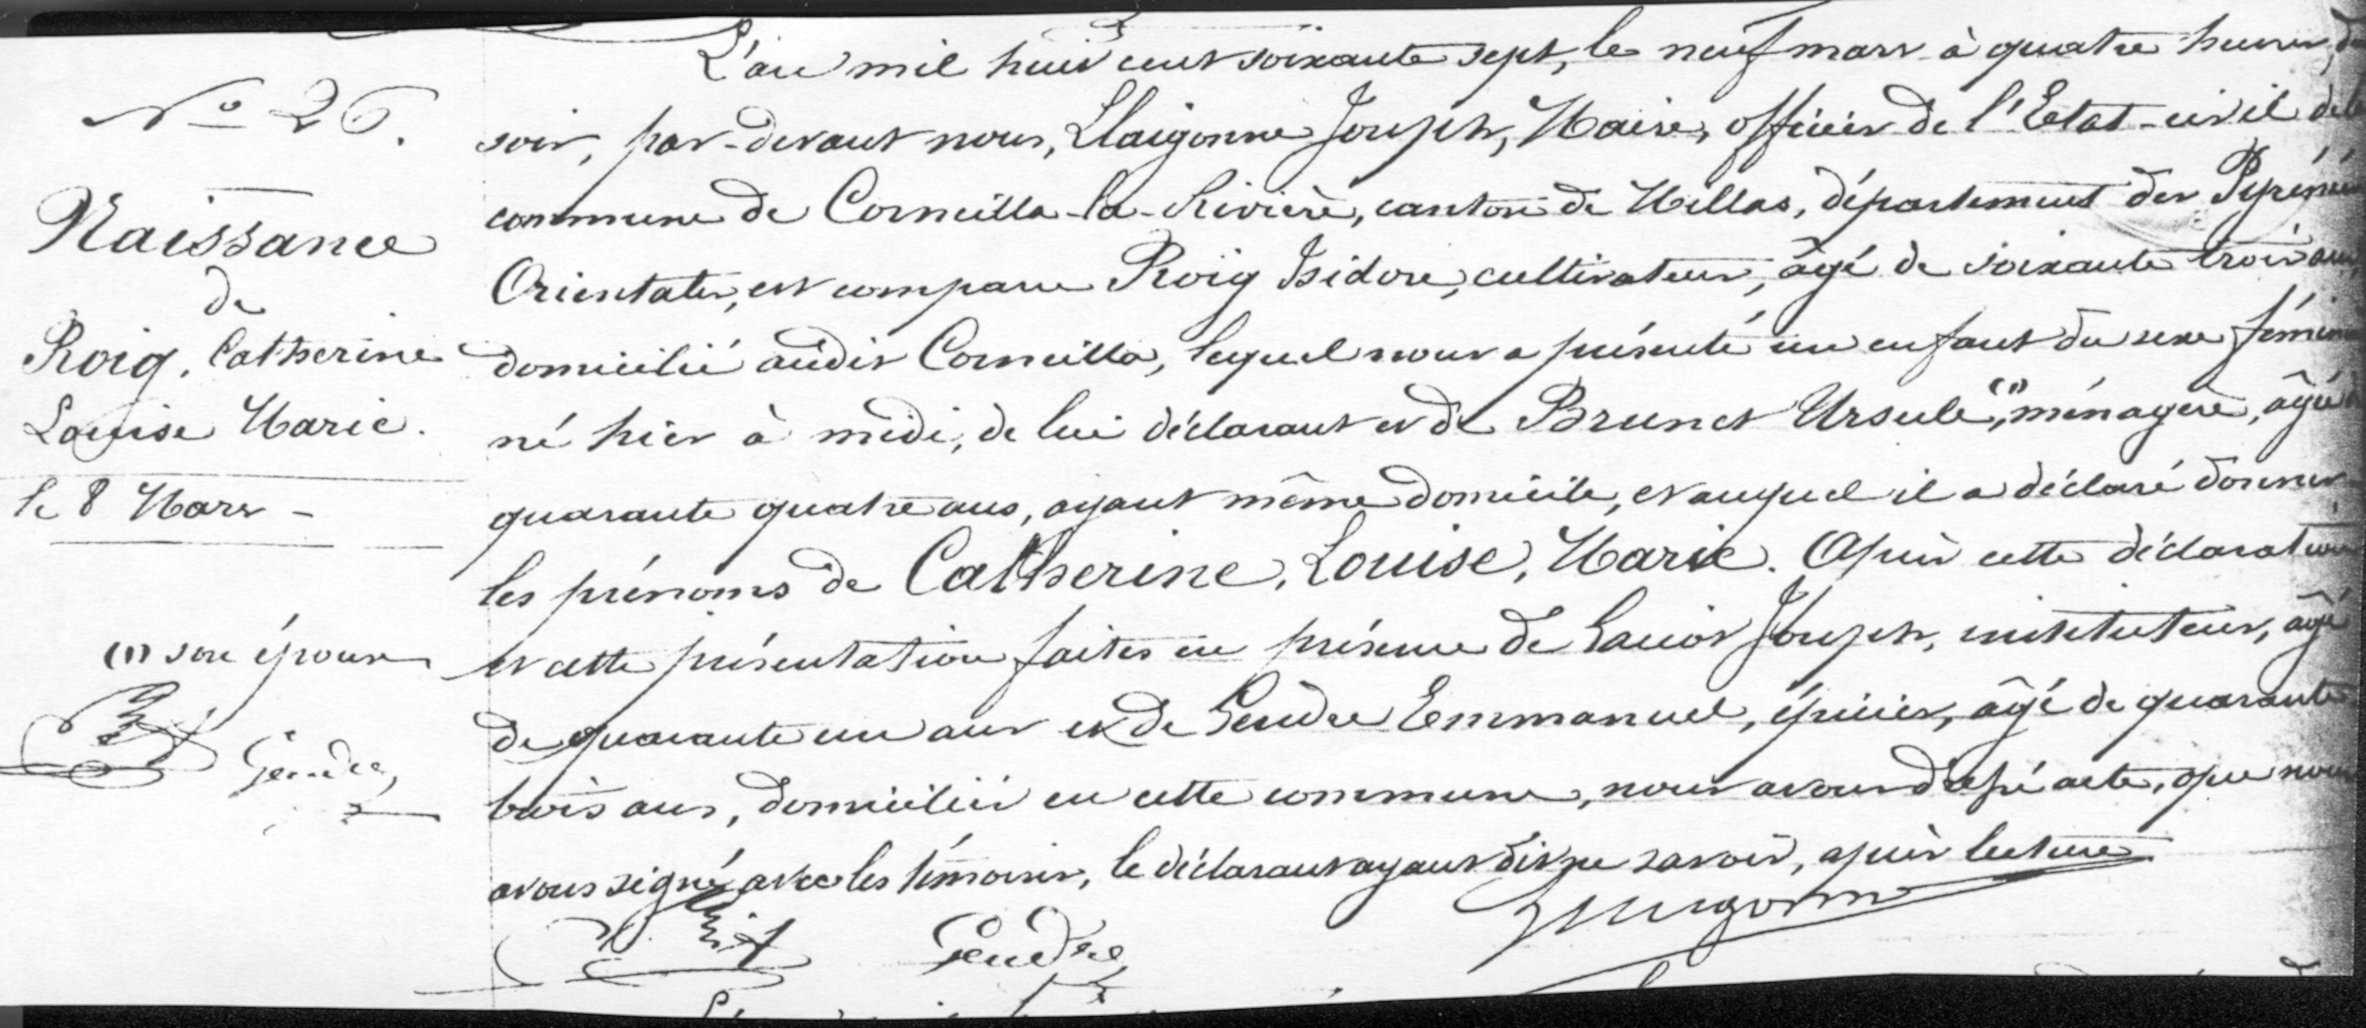 N° 26.
Naissance
de
Roig, Catherine
Louise Marie.
le 8 Mars -
(1) son épouse
Gendre
L'an mil huit cent soixante sept, le neuf mars à quatre heures, du
soir, par-devant nous, Llaigonne Joseph, Maire, officier de l'Etat-civil de la
commune de Corneilla-la-Rivière, canton de Millas, département des Pyrénées
Orientales, est comparu Roig Isidore, cultivateur, âgé de soixante trois ans,
domicilié audit Corneilla, lequel nous a présenté un enfant du sexe féminin
né hier à midi, de lui déclarant et de Brunet Ursule, (1) ménagère, âgée de
quarante quatre ans, ayant même domicile, et auquel il a déclaré donner
les prénoms de Catherine, Louise, Marie. Après cette déclaration
et cette présentation faites en présence de Joseph, instituteur, âgé
de quarante un ans et de Gendre Emmanuel, épicier, âgé de quarante
trois ans, domiciliés en cette commune, nous avons dressé acte, que nous
avons signé avec les témoins, le déclarant ayant dit ne savoir, après lecture
Gendre
Llaigonne